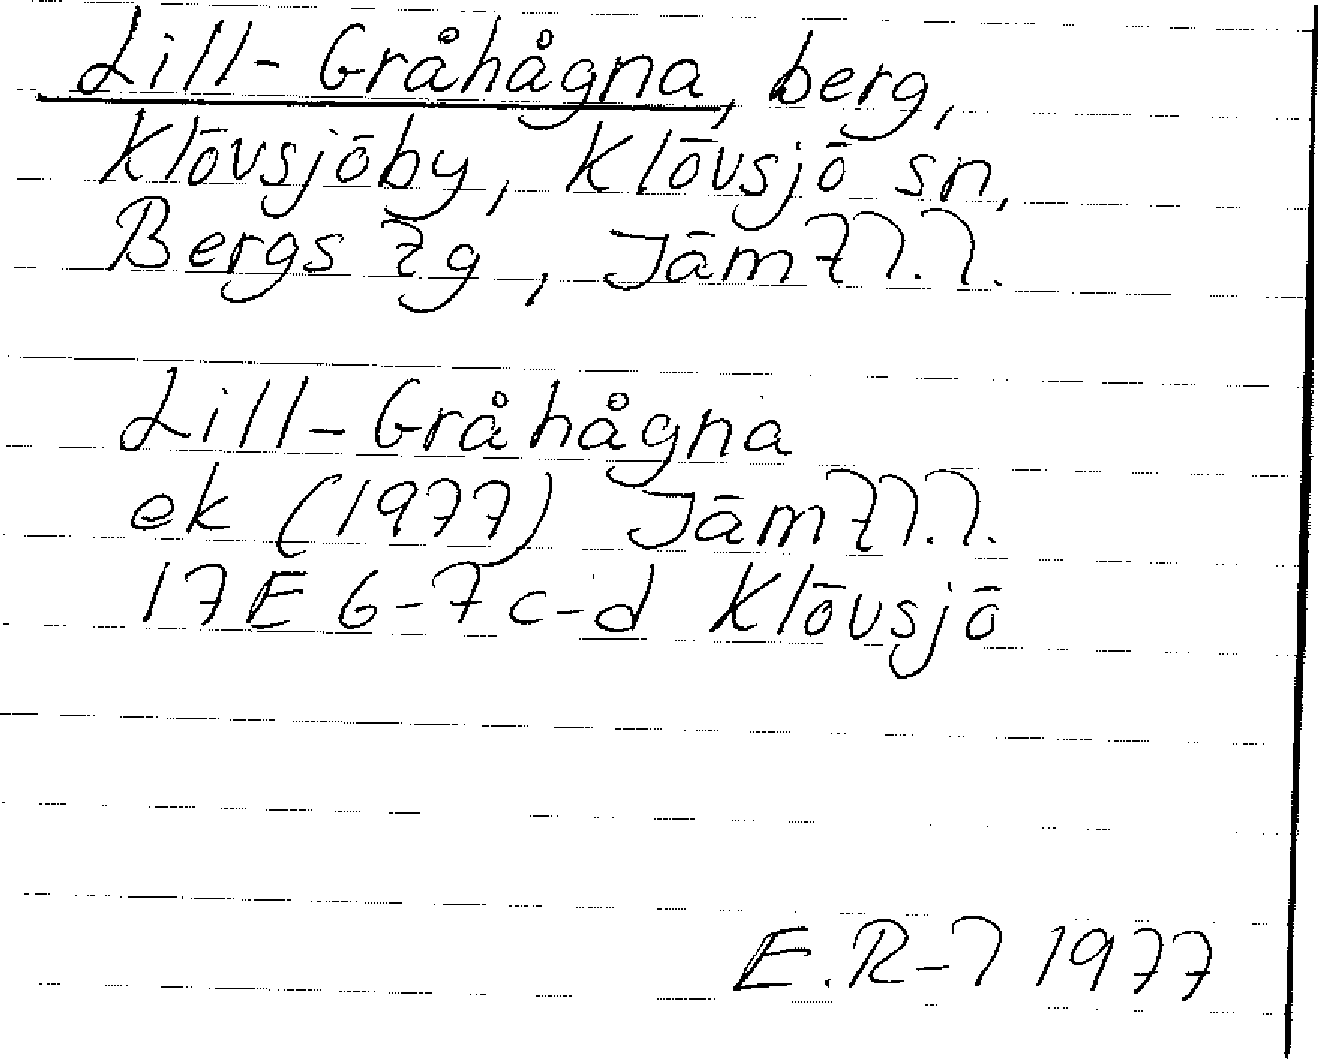 Lill-Gråhågna, berg,
Klövsjöby, Klövsjö sn,
Bergs tg,
Lill-Gråhågna
ek (1977)
17E 6-7c-d Klövsjö
1977